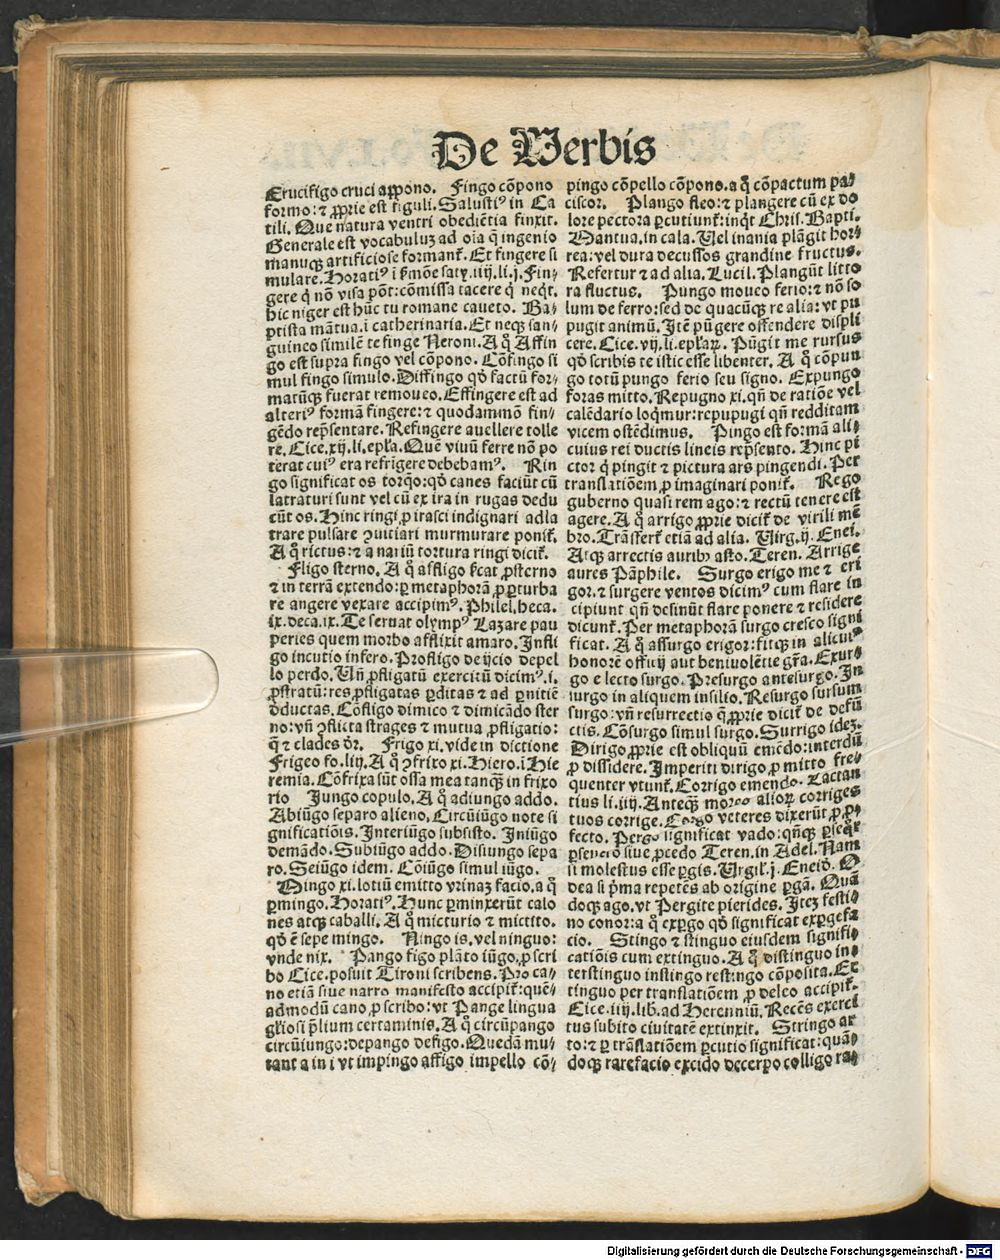 De Verbis
Crucifigo cruci appono. Fingo cōpono
formo: ⁊ ꝓprie est figuli. Salustiꝰ in Ca
tili. Que natura ventri obediētia finxit.
Generale est vocabuluꝫ ad oīa q̄ ingenio
manuqꝫ artificiose formant̄. Et fingere si
mulare. Horatiꝰ ī ẜmōe satyꝝ. iiij. li. j. Fin⸗
gere q̇ nō visa pōt: cōmissa tacere q̇ neq̇t.
hic niger est hūc tu romane caueto. Ba⸗
ptista mātua. ī catherinaria. Et neqꝫ san⸗
guineo similē te finge Neroni. A q̊ Affin
go est supra fingo vel cōpono. Cōfingo si
mul fingo simulo. Diffingo qd̄ factū for⸗
matūqꝫ fuerat remoueo. Effingere est ad
alteriꝰ formā fingere: ⁊ quodammō fin⸗
gēdo rep̄sentare. Refingere auellere tolle
re. Cice. xij. li. epl̄a. Quē viuū ferre nō po
terat cuiꝰ era refrigere debebamꝰ. Rin
go significat os torq̄o: qd̄ canes faciūt cū
latraturi sunt vel cū ex ira in rugas dedu
cūt os. Hinc ringi ꝓ irasci indignari adla
trare pulsare ꝯuiciari murmurare ponit̄.
A q̊ rictus: ⁊ a nariū tortura ringi dicit̄.
Fligo sterno. A q̊ affligo ẜcat ꝓsterno
⁊ in terrā extendo: ꝑ metaphorā ꝓ ꝑturba
re angere vexare accipimꝰ. Philel. heca.
ix. deca. ix. Te seruat olympꝰ Lazare pau
peries quem morbo afflixit amaro. Infli
go incutio infero. Profligo deijcio depel
lo perdo. Vn̄ ꝓfligatū exercitū dicimꝰ. i.
ꝓstratū: res ꝓfligatas ꝑditas ⁊ ad ꝑnitiē
ꝺductas. Cōfligo dimico ⁊ dimicādo ster
no: vn̄ ꝯflicta strages ⁊ mutua ꝓfligatio:
q̄ ⁊ clades dr̄. Frigo xi. vide in dictione
Frigeo fo. liij. A q̊ ꝯfrixo xi. Hiero. ī Hie
remia. Cōfrixa sūt ossa mea tanqꝫ in frixo
rio Jungo copulo. A q̊ adiungo addo.
Abiūgo separo alieno. Circūiūgo note si
gnificatiōis. Interiūgo subsisto. Iniūgo
demādo. Subiūgo addo. Disiungo sepa
ro. Seiūgo idem. Cōiūgo simul iūgo.
Mingo xi. lotiū emitto vrinaꝫ facio. a q̊
ꝑmingo. Horatiꝰ. Hunc ꝑminxerūt calo
nes atqꝫ caballi. A q̊ micturio ⁊ mictito.
qd̄ ē sepe mingo. Ningo is. vel ninguo:
vnde nix. Pango figo plāto iūgo, ꝓ scri
bo Cice. posuit Tironi scribens. Pro ca⸗
no etiā siue narro manifesto accipit̄: quē⸗
admodū cano, ꝓ scribo: vt Pange lingua
gl̄iosi p̄lium certaminis. A q̊ circūpango
circūiungo: depango defigo. Quedā mu⸗
tant a in i vt impingo affigo impello cō⸗
pingo cōpello cōpono. a q̊ cōpactum pa⸗
ciscor. Plango fleo: ⁊ plangere cū ex do
lore pectora ꝑcutiunt̄: inq̇t Chris. Bapti.
Mantua. in cala. Vel inania plāgit hor⸗
rea: vel dura decussos grandine fructus.
Refertur ⁊ ad alia. Lucil. Plangūt litto
ra fluctus. Pungo moueo ferio: ⁊ nō so
lum de ferro: sed de quacūqꝫ re alia: vt pu
pugit animū. Itē pūgere offendere displi
cere. Cice. vij. li. epl̄aꝝ. Pūgit me rursus
qd̄ scribis te istic esse libenter. A q̊ cōpun
go totū pungo ferio seu signo. Expungo
foras mitto. Repugno xi. qn̄ de ratiōe vel
calēdario loq̄mur: repupugi qn̄ redditam
vicem ostēdimus. Pingo est formā ali⸗
cuius rei ductis lineis rep̄sento. Hinc pi
ctor q̇ pingit ⁊ pictura ars pingendi. Per
translatiōem ꝓ imaginari ponit̄. Rego
guberno quasi rem ago: ⁊ rectū tenere est
agere. A q̊ arrigo ꝓprie dicit̄ de virili mē
bro. Trāsfert̄ etiā ad alia. Virg. ij. Enei.
Atqꝫ arrectis auribꝰ asto. Teren. Arrige
aures Pāphile. Surgo erigo me ⁊ eri
gor. ⁊ surgere ventos dicimꝰ cum flare in
cipiunt qn̄ desinūt flare ponere ⁊ residere
dicunt̄. Per metaphorā surgo cresco signi
ficat. A q̊ assurgo erigor: fitqꝫ in alicuiꝰ
honorē officij aut beniuolētie gr̄a. Exur⸗
go e lecto surgo. Presurgo antesurgo. In
surgo in aliquem insilio. Resurgo sursum
surgo: vn̄ resurrectio q̄ ꝓprie dicit̄ de defū
ctis. Cōsurgo simul surgo. Surrigo ideꝫ.
Dirigo ꝓprie est obliquū emēdo: interdū
ꝓ dissidere. Imperiti dirigo ꝓ mitto fre⸗
quenter vtunt̄. Corrigo emendo. Lactan
tius li. iiij. Anteqꝫ mores alioꝝ corriges
tuos corrige. veteres dixerūt ꝓ ꝑ⸗
fecto. Pergo significat vado: qn̄qꝫ ꝑseq̄r
ꝑseuero siue ꝓcedo Teren. in Adel. Nam
si molestus esse ꝑgis. Virgil. j. Eneid. O
dea si p̄ma repetēs ab origine ꝑgā. Quā
doqꝫ ago. vt Pergite pierides. Iteꝫ festi⸗
no conor: a q̊ exꝑgo qd̄ significat exꝑgefa
cio. Stingo ⁊ stinguo eiusdem signifi⸗
catiōis cum extinguo. A q̊ distinguo in⸗
terstinguo instingo restingo cōposita. Ex
tinguo per translatiōem ꝓ deleo accipit̄.
Cice. iiij. lib. ad Herenniū. Recēs exerci
tus subito ciuitatē extinxit. Stringo ar
to: ⁊ ꝑ trāslatiōem ꝑcutio significat: quā⸗
doqꝫ rarefacio excido decerpo colligo ra⸗
Digitalisierung gefördert durch die Deutsche Forschungsgemeinschaft - DFG